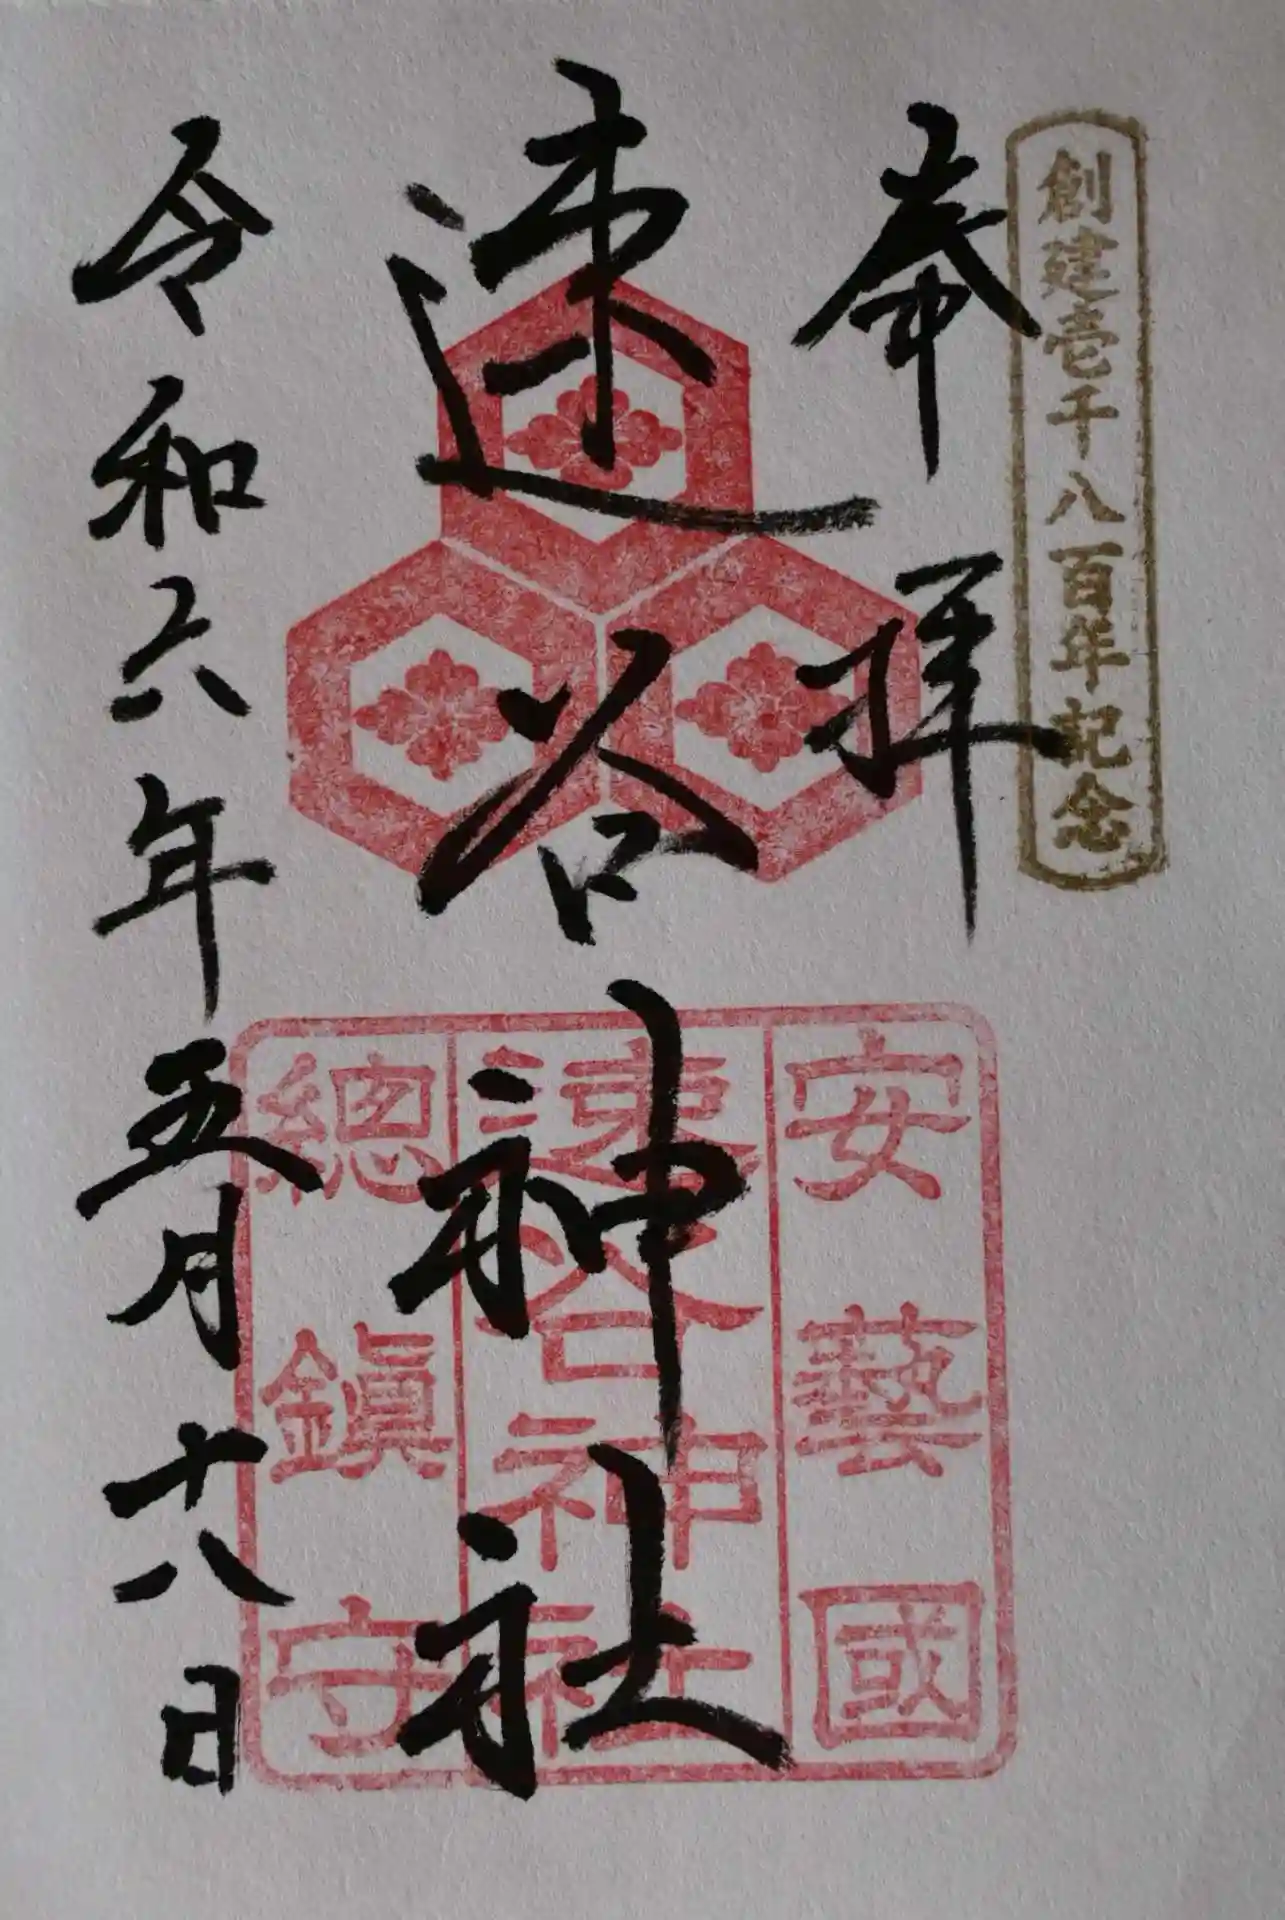 創建壱千八百年記念
奉拝
速谷神社
令和六年五月十八日
安藝國
速谷神社
總鎮守